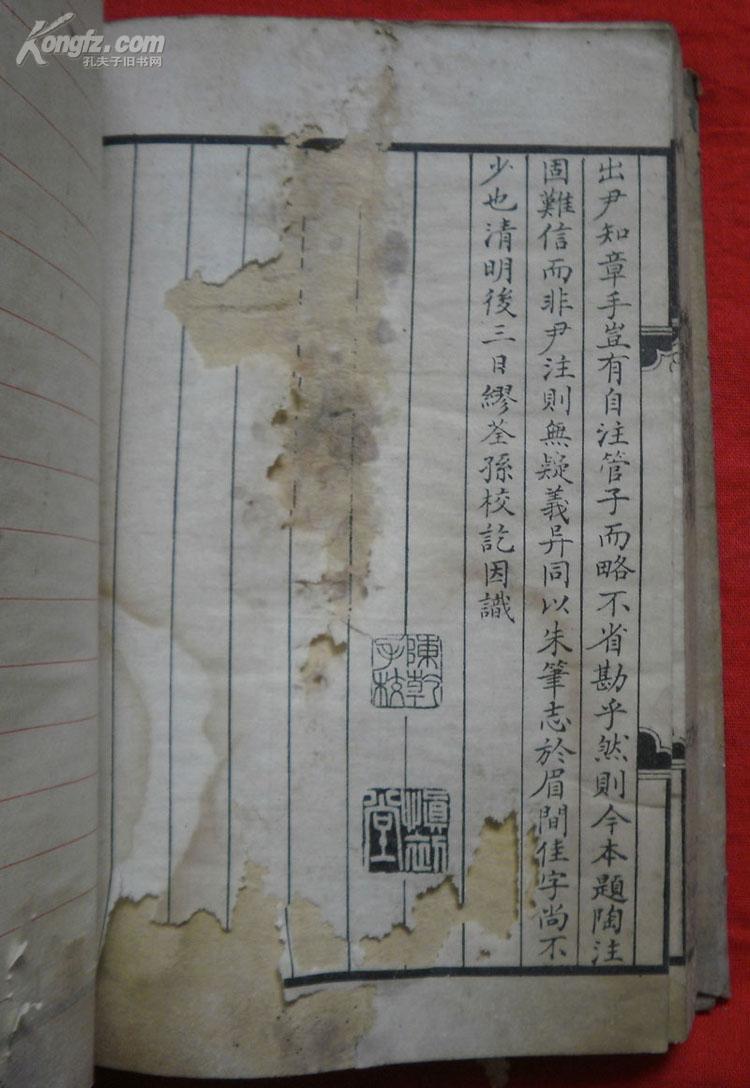 Kongfz.com
孔夫子旧书网
出尹知章手豈有自注管子而略不省勘乎然則今本題陶注
固難信而非尹注則無疑義异同以朱筆志於眉間佳字尚不
少也清明後三日繆荃孫校訖因識
陳乾
手校
慎初
堂